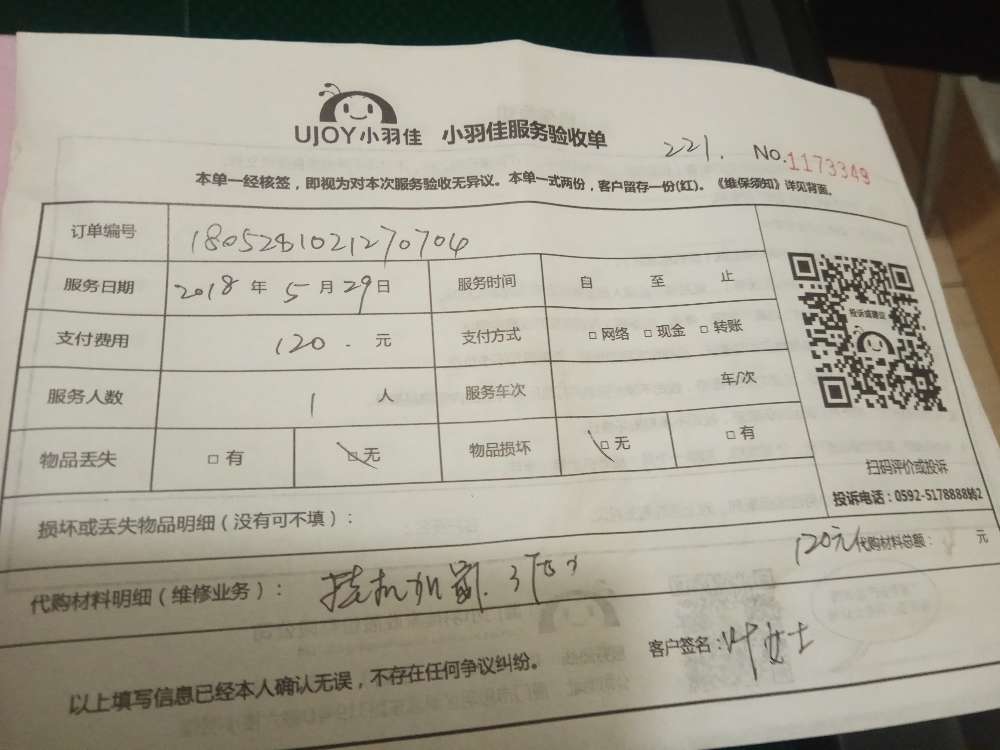 UJOY小羽佳 小羽佳服务验收单 221. No.1173349
本单一经核签，即视为对本次服务验收无异议。本单一式两份，客户留存一份(红)。《维保须知》详见背面。
订单编号 1805281021270704
服务日期 2018年5月29日 服务时间 自 至 止
投诉或建议
支付费用 120.元 支付方式 □网络 □现金 □转账
服务人数 1人 服务车次 车/次
物品丢失 □有 □无 物品损坏 □无 □有
扫码评价或投诉
投诉电话：0592-5178888转2
损坏或丢失物品明细（没有可不填）：
代购材料明细（维修业务）： 挂机加氟. 120元 代购材料总额： 元
以上填写信息已经本人确认无误，不存在任何争议纠纷。 客户签名：叶女士